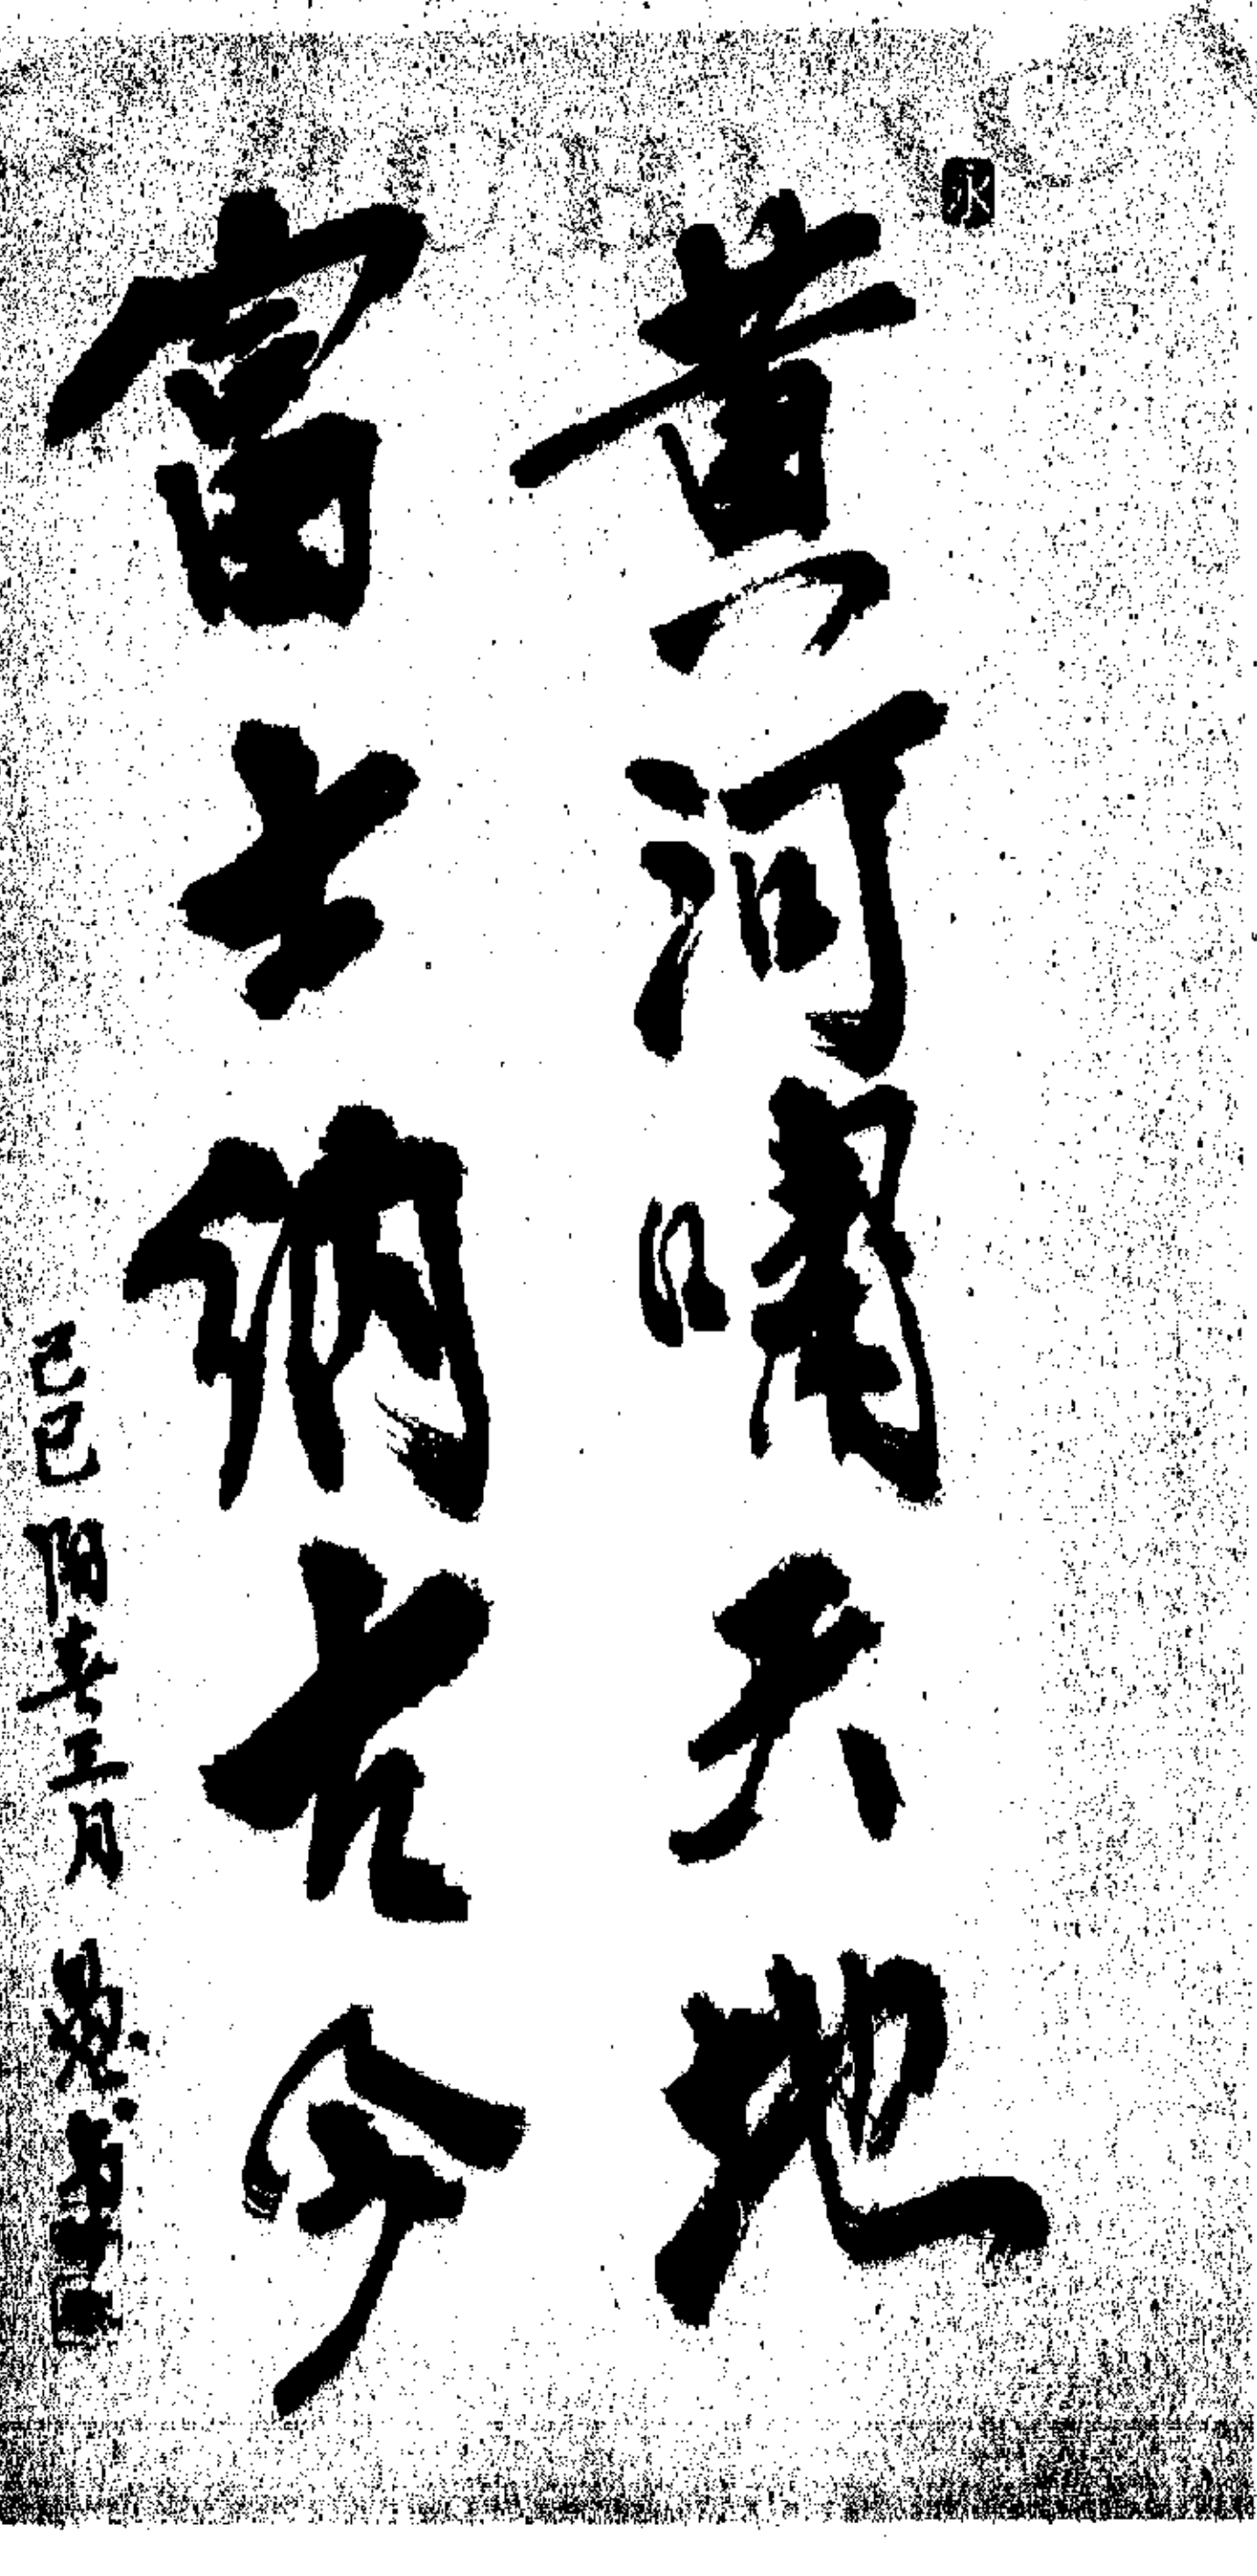 黄河啸天地
富士纳古今
己巳阳春三月